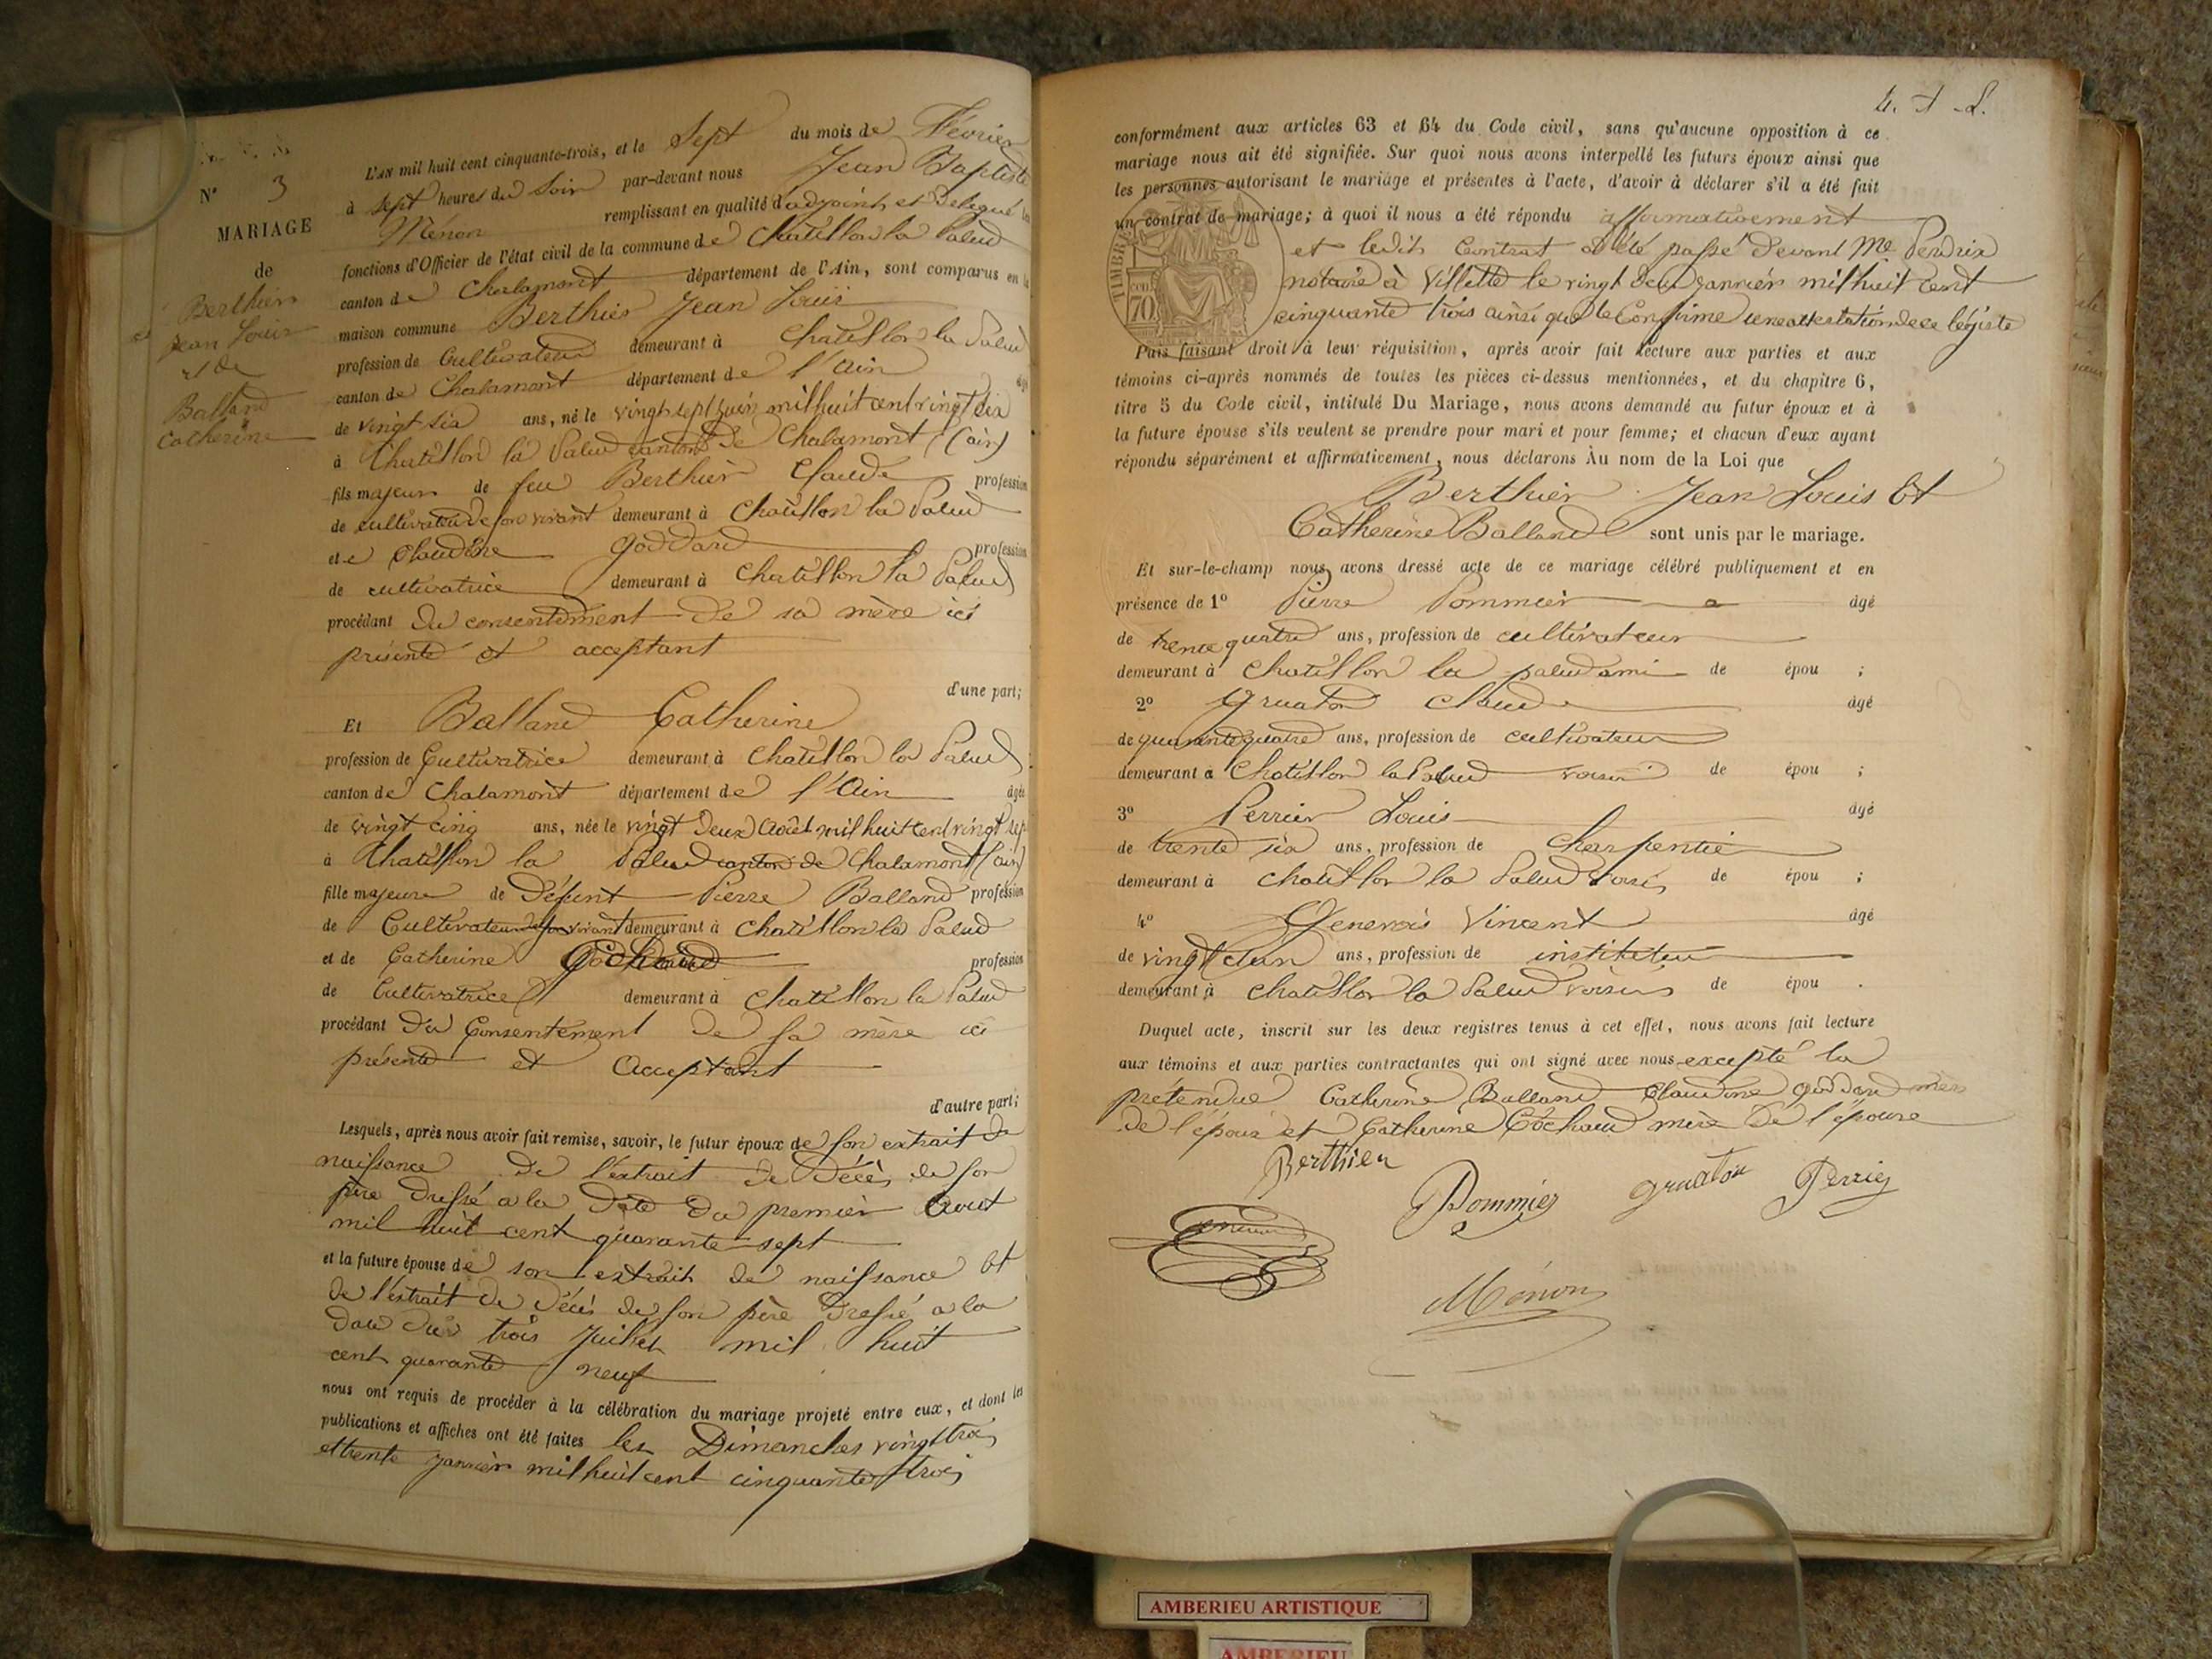 N° 3
MARIAGE
de
Berthier
Jean Louis
et de
Balland
Catherine
L'AN mil huit cent cinquante-trois, et le Sept du mois de Février
à sept heures du Soir par-devant nous Jean Baptiste
Ménon remplissant en qualité d'adjoint et délégué les
fonctions d'Officier de l'état civil de la commune de Chatillon la Palud
canton de Chalamont département de l'Ain, sont comparus en la
maison commune Berthier Jean Louis
profession de Cultivateur demeurant à Chatillon la Palud
canton de Chalamont département de l'Ain âgé
de vingt six ans, né le vingt sept juin mil huit cent vingt six
à Chatillon la Palud canton de Chalamont (ain)
fils majeur de feu Berthier Claude profession
de cultivateur de son vivant demeurant à Chatillon la Palud
et de Claudine Goddard profession
de cultivatrice demeurant à Chatillon la Palud
procédant du consentement de sa mère ici
présente et acceptant
d'une part;
Et Balland Catherine
profession de Cultivatrice demeurant à Chatillon la Palud
canton de Chalamont département de l'Ain âgée
de vingt cinq ans, née le vingt deux Août mil huit cent vingt sept
à Chatillon la Palud canton de Chalamont (ain)
fille majeure de Défunt Pierre Balland profession
de Cultivateur de son vivant demeurant à Chatillon la Palud
et de Catherine Cochaud profession
de Cultivatrice demeurant à Chatillon la Palud
procédant du Consentement de sa mère ici
présente et Acceptant
d'autre part;
Lesquels, après nous avoir fait remise, savoir, le futur époux de son extrait de
naissance de l'extrait de décès de son
père Dressé a la Date du premier Aout
mil huit cent quarante sept
et la future épouse de son extrait de naissance Et
de l'extrait de décès de son père Dressé a la
date du trois Juillet mil huit
cent quarante neuf
nous ont requis de procéder à la célébration du mariage projeté entre eux, et dont les
publications et affiches ont été faites les Dimanches vingt trois
et trente janvier mil huit cent cinquante trois
conformément aux articles 63 et 64 du Code civil, sans qu'aucune opposition à ce
mariage nous ait été signifiée. Sur quoi nous avons interpellé les futurs époux ainsi que
les personnes autorisant le mariage et présentes à l'acte, d'avoir à déclarer s'il a été fait
un contrat de mariage; à quoi il nous a été répondu affirmativement
et ledit Contrat a été passé devant Me Perdrix
notaire à Villette le vingt deux janvier mil huit cent
cinquante trois ainsi que le Confirme une attestation de ce légiste
TIMBRE
70
Puis faisant droit à leur réquisition, après avoir fait lecture aux parties et aux
témoins ci-après nommés de toutes les pièces ci-dessus mentionnées, et du chapitre 6,
titre 5 du Code civil, intitulé Du Mariage, nous avons demandé au futur époux et à
la future épouse s'ils veulent se prendre pour mari et pour femme; et chacun d'eux ayant
répondu séparément et affirmativement, nous déclarons Au nom de la Loi que
Berthier Jean Louis Et
Catherine Balland sont unis par le mariage.
Et sur-le-champ nous avons dressé acte de ce mariage célébré publiquement et en
présence de 1° Pierre Pommier âgé
de trente quatre ans, profession de cultivateur
demeurant à Chatillon la palud ami de épou ;
2° Gruaton Claude âgé
de quarante quatre ans, profession de cultivateur
demeurant à Chatillon la Palud voisin de épou ;
3° Perrier Louis âgé
de trente six ans, profession de Charpentié
demeurant à Chatillon la Palud voisin de épou ;
4° Genevois Vincent âgé
de vingt ans, profession de instituteur
demeurant à Chatillon la Palud voisin de épou .
Duquel acte, inscrit sur les deux registres tenus à cet effet, nous avons fait lecture
aux témoins et aux parties contractantes qui ont signé avec nous excepté la
prétendue Catherine Balland Claudine goddard mère
de l'époux et Catherine Cochaud mère De l'épouse
Berthier
Pommier Gruaton Perrier
Ménon
AMBERIEU ARTISTIQUE
AMBERIEU